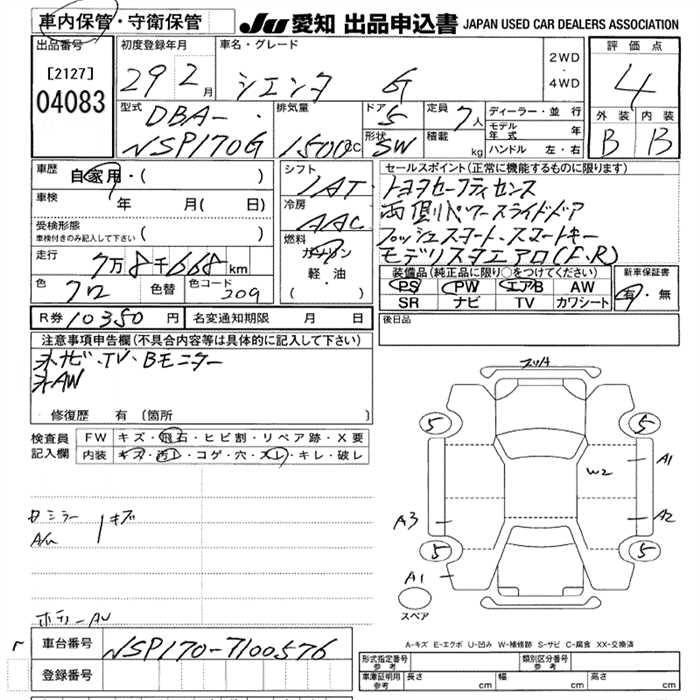 車内保管・守衛保管 JU 愛知 出品申込書 JAPAN USED CAR DEALERS ASSOCIATION
出品番号 初度登録年月 車名・グレード 2WD・4WD 評価点
[2127] 29 2月 シエンタ G 4
04083
型式 DBA- 排気量 ドア 5 定員 7人 ディーラー・並行 外装 内装
NSP170G 1500cc 形状 SW 積載 kg モデル年式 年 B B
ハンドル 左・右
車歴 自家用・( ) シフト IAT セールスポイント(正常に機能するものに限ります)
車検 年 月( 日) 冷房 AAC トヨタセーフティセンス
両側パワースライドドア
受検形態 車検付きのみ記入して下さい ( ) 燃料 ガソリン プッシュスタート、スマートキー
走行 7万8千668km 軽・油 モデリスタエアロ(F.R)
色 クロ 色替 色コード 209 ( ) 装備品(純正品に限り○をつけてください) 新車保証書
PS PW エアB AW 有・無
SR ナビ TV カワシート
R券 10350円 名変通知期限 月 日 後日品
注意事項申告欄(不具合内容等は具体的に記入して下さい)
ナビ・TV・Bモニター
AW
修復歴 有 〔箇所 〕
検査員記入欄 FW キズ・飛石・ヒビ割・リペア跡・X要
内装 キズ・汚レ・コゲ・穴・スレ・キレ・破レ
5 5 W2 A1
A3 A2
5 5
A1
スペア
キズ
A-キズ E-エクボ U-凹み W-補修跡 S-サビ C-腐食 XX-交換済
車台番号 NSP170-7100576
登録番号
形式指定番号 参考 類別区分番号 参考
車庫証明用 参考 長さ cm 幅 cm 高さ cm